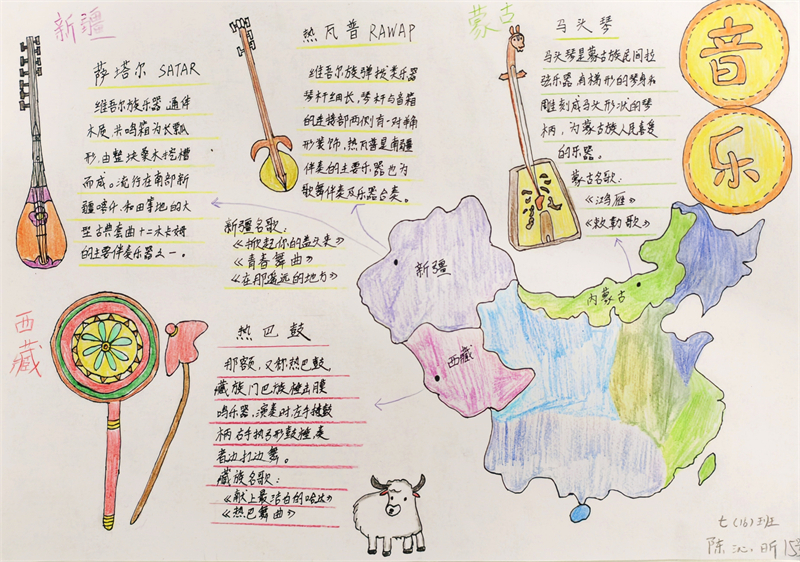 新疆
萨塔尔 SATAR
维吾尔族乐器,通体
木质,共鸣箱为长瓢
形,由整块桑木挖槽
而成。流行在南部新
疆喀什、和田等地的大
型古典套曲十二木卡姆
的主要伴奏乐器之一。
热瓦普 RAWAP
维吾尔族弹拨类乐器
琴杆细长,琴杆与音箱
的连接部两侧有一对羊角
形装饰,热瓦普是南疆
伴奏的主要乐器也为
歌舞伴奏及乐器合奏。
新疆名歌:
《掀起你的盖头来》
《青春舞曲》
《在那遥远的地方》
蒙古
马头琴
马头琴是蒙古族民间拉
弦乐器,有梯形的琴身和
雕刻成马头形状的琴
柄,为蒙古族人民喜爱
的乐器。
蒙古名歌:
《鸿雁》
《敕勒歌》
音
乐
新疆
内蒙古
西藏
西藏
热巴鼓
那额,又称热巴鼓
藏族门巴族棰击膜
鸣乐器,演奏时,左手持鼓
柄右手执弓形鼓棰,奏
者边打边舞。
藏族名歌:
《献上最洁白的哈达》
《热巴舞曲》
七(16)班
陈沁昕 15号